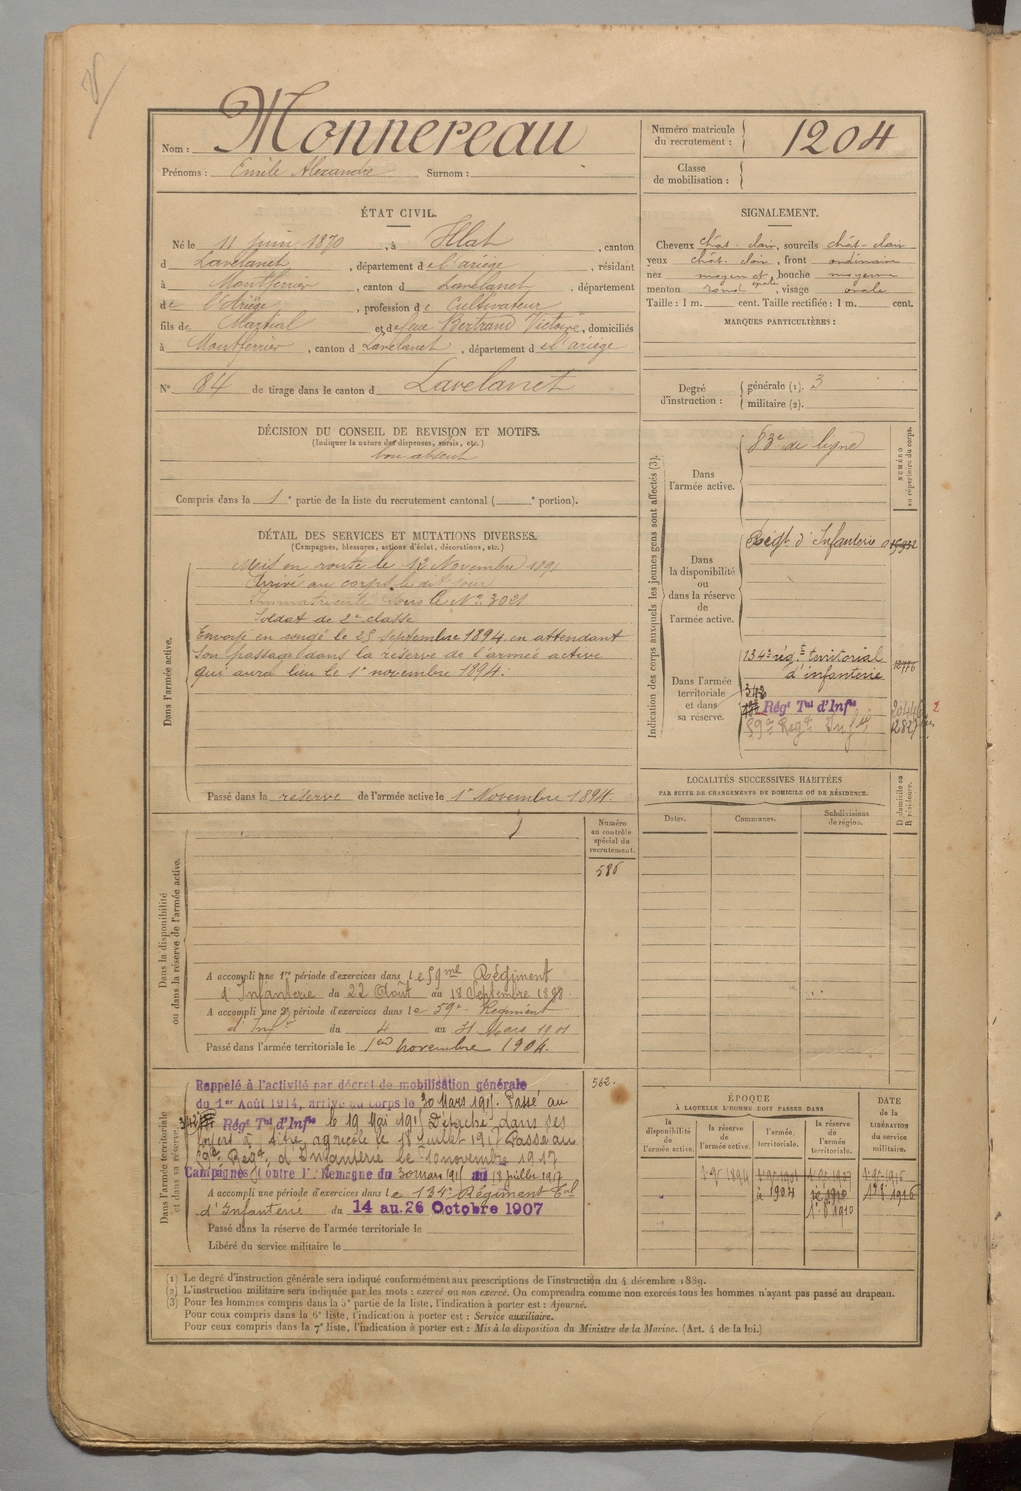 Nom : Monnereau
Prénoms : Emile Alexandre Surnom :
Numéro matricule
du recrutement : 1204
Classe
de mobilisation :
ÉTAT CIVIL.
Né le 11 juin 1870, à Illat, canton
d Lavelanet, département de l'ariège, résidant
à Montferrier, canton d Lavelanet, département
de l'Ariège, profession de Cultivateur
fils de Martial et de feue Bertrand Victoire, domiciliés
à Montferrier, canton d Lavelanet, département de l'ariège
N° 84 de tirage dans le canton d Lavelanet
SIGNALEMENT.
Cheveux chât-clair, sourcils chât-clair
yeux chât. clair, front ordinaire
nez moyen et, bouche moyenne
menton rond, visage ovale
Taille : 1 m. cent. Taille rectifiée : 1 m. cent.
MARQUES PARTICULIÈRES :
Degré
d'instruction :
générale (1). 3
militaire (2).
DÉCISION DU CONSEIL DE REVISION ET MOTIFS.
(Indiquer la nature des dispenses, sursis, etc.)
bon absent
Compris dans la 1e partie de la liste du recrutement cantonal ( e portion).
DÉTAIL DES SERVICES ET MUTATIONS DIVERSES.
(Campagnes, blessures, actions d'éclat, décorations, etc.)
Dans l'armée active.
Mis en route le 12 Novembre 1891
Arrivé au corps le dit jour
Immatriculé sous le No 3021
Soldat de 2e classe
Envoyé en congé le 25 septembre 1894 en attendant
Son passage dans la réserve de l'armée active
qui aura lieu le 1er novembre 1894.
Passé dans la réserve de l'armée active le 1er Novembre 1894.
Indication des corps auxquels les jeunes gens sont affectés (3).
NUMÉRO
au répertoire du corps.
Dans
l'armée active.
83e de ligne
Dans
la disponibilité
ou
dans la réserve
de
l'armée active.
Regt d'Infanterie
Dans l'armée
territoriale
et dans
sa réserve.
134e rég.t territorial
d'infanterie
343
Régt Tal d'Infie
59e Régt Infie
LOCALITÉS SUCCESSIVES HABITÉES
PAR SUITE DE CHANGEMENTS DE DOMICILE OU DE RÉSIDENCE.
Dates.
Communes.
Subdivisions
de région.
D domicile ou
R résidence.
Dans la disponibilité
ou dans la réserve de l'armée active.
Numéro
au contrôle
spécial du
recrutement.
586
A accompli une 1re période d'exercices dans le 59me Régiment
d'Infanterie du 22 Août au 18 Septembre 1898.
A accompli une 2e période d'exercices dans le 59e Régiment
d'Infie du 4 au 31 Mars 1901
Passé dans l'armée territoriale le 1er novembre 1904.
Dans l'armée territoriale
et dans sa réserve.
562.
Rappelé à l'activité par décret de mobilisation générale
du 1er Août 1914, arrivé au corps le 30 Mars 191. Passé au
Régt Tal d'Infie le 19 Mai 191 Détaché dans ses
foyers à titre agricole le 18 Juillet 1917 Passé au
59e Régt d'Infanterie le 10 novembre 1917
Campagnes Contre l'Allemagne du 30 mars 191 au 18 juillet 1917
A accompli une période d'exercices dans le 134e Régiment Tal
d'Infanterie du 14 au 26 Octobre 1907
Passé dans la réserve de l'armée territoriale le
Libéré du service militaire le
ÉPOQUE
À LAQUELLE L'HOMME DOIT PASSER DANS
la
disponibilité
de
l'armée active.
la réserve
de
l'armée active.
l'armée
territoriale.
la réserve
de
l'armée
territoriale.
DATE
de la
LIBÉRATION
du service
militaire.
(1) Le degré d'instruction générale sera indiqué conformément aux prescriptions de l'instruction du 4 décembre 1889.
(2) L'instruction militaire sera indiquée par les mots : exercé ou non exercé. On comprendra comme non exercés tous les hommes n'ayant pas passé au drapeau.
(3) Pour les hommes compris dans la 5e partie de la liste, l'indication à porter est : Ajourné.
Pour ceux compris dans la 6e liste, l'indication à porter est : Service auxiliaire.
Pour ceux compris dans la 7e liste, l'indication à porter est : Mis à la disposition du Ministre de la Marine. (Art. 4 de la loi.)